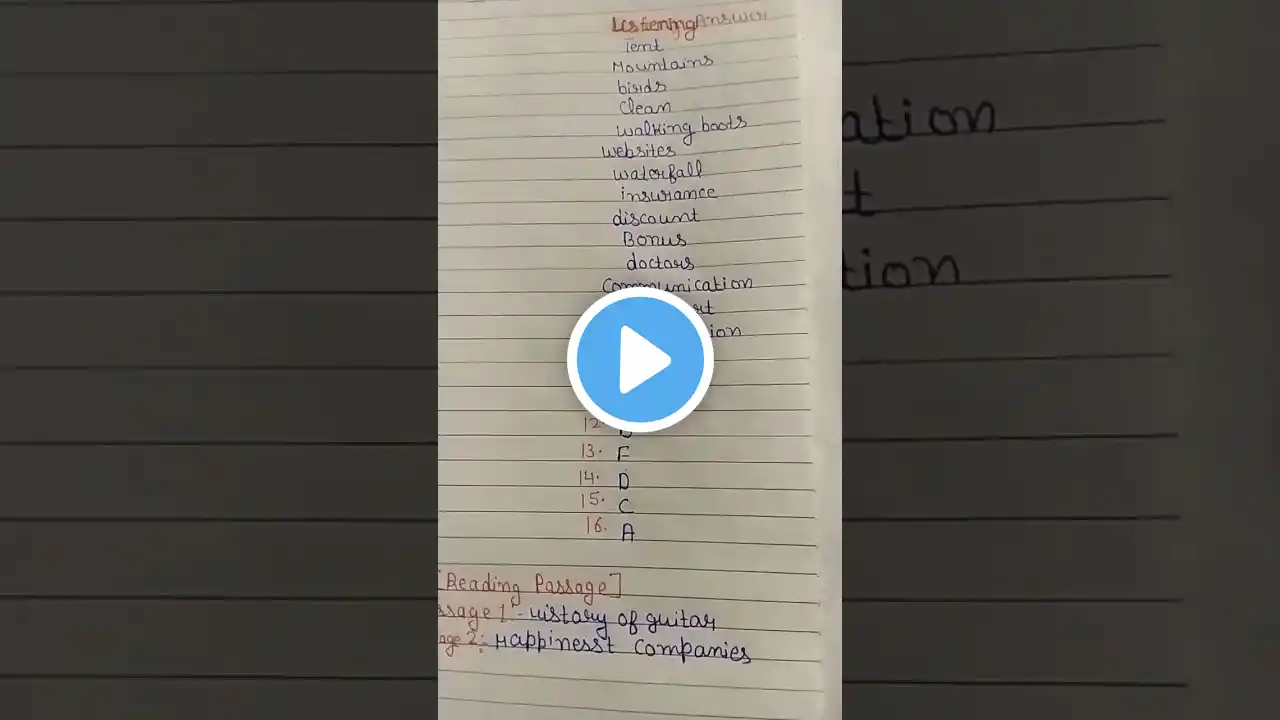 Listening Answer
Tent
Mountains
birds
clean
walking boots
websites
waterfall
insurance
discount
Bonus
doctors
Communication
rt
ion
12.
13. F
14. D
15. C
16. A
[Reading Passage]
ssage 1:- History of guitar
age 2:- Happinesst Companies
ation
t
tion